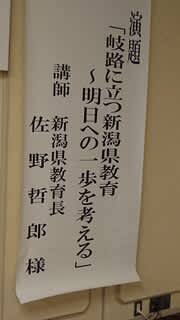 演題
「岐路に立つ新潟県教育
～明日への一歩を考える」
講師 新潟県教育長
佐野哲郎様